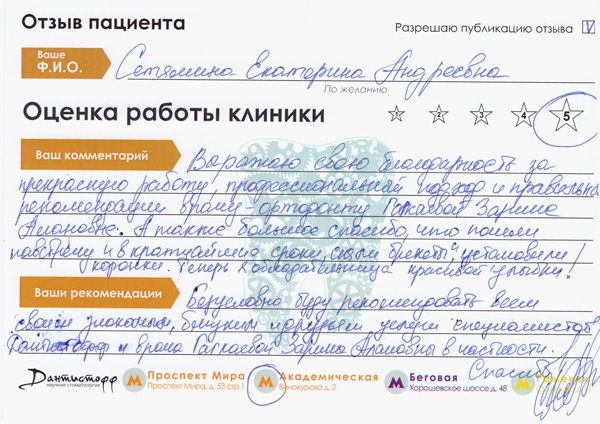 Отзыв пациента
Разрешаю публикацию отзыва
Ваше
Ф.И.О.
Сетямина Екатерина Андреевна
По желанию
Оценка работы клиники
1 2 3 4 5
Ваш комментарий
Выражаю свою благодарность за
прекрасную работу, профессиональный подход и правильные
рекомендации врачу-ортодонту Гаглаевой Зарине
Алановне. А также большое спасибо, что пошли
навстречу и в кратчайшие сроки, сняли брекеты и установили
коронки. Теперь я обладательница красивой улыбки!
Ваши рекомендации
Безусловно буду рекомендовать всем
своим знакомым, близким и друзьям услуги специалистов
Дантистофф и врача Гаглаевой Зарины Алановны в частности.
Спасибо
Дантистофф
научная стоматология
М Проспект Мира
Проспект Мира, д. 53 стр. 1
М Академическая
Винокурова д. 2
М Беговая
Хорошевское шоссе д. 48
Раменки